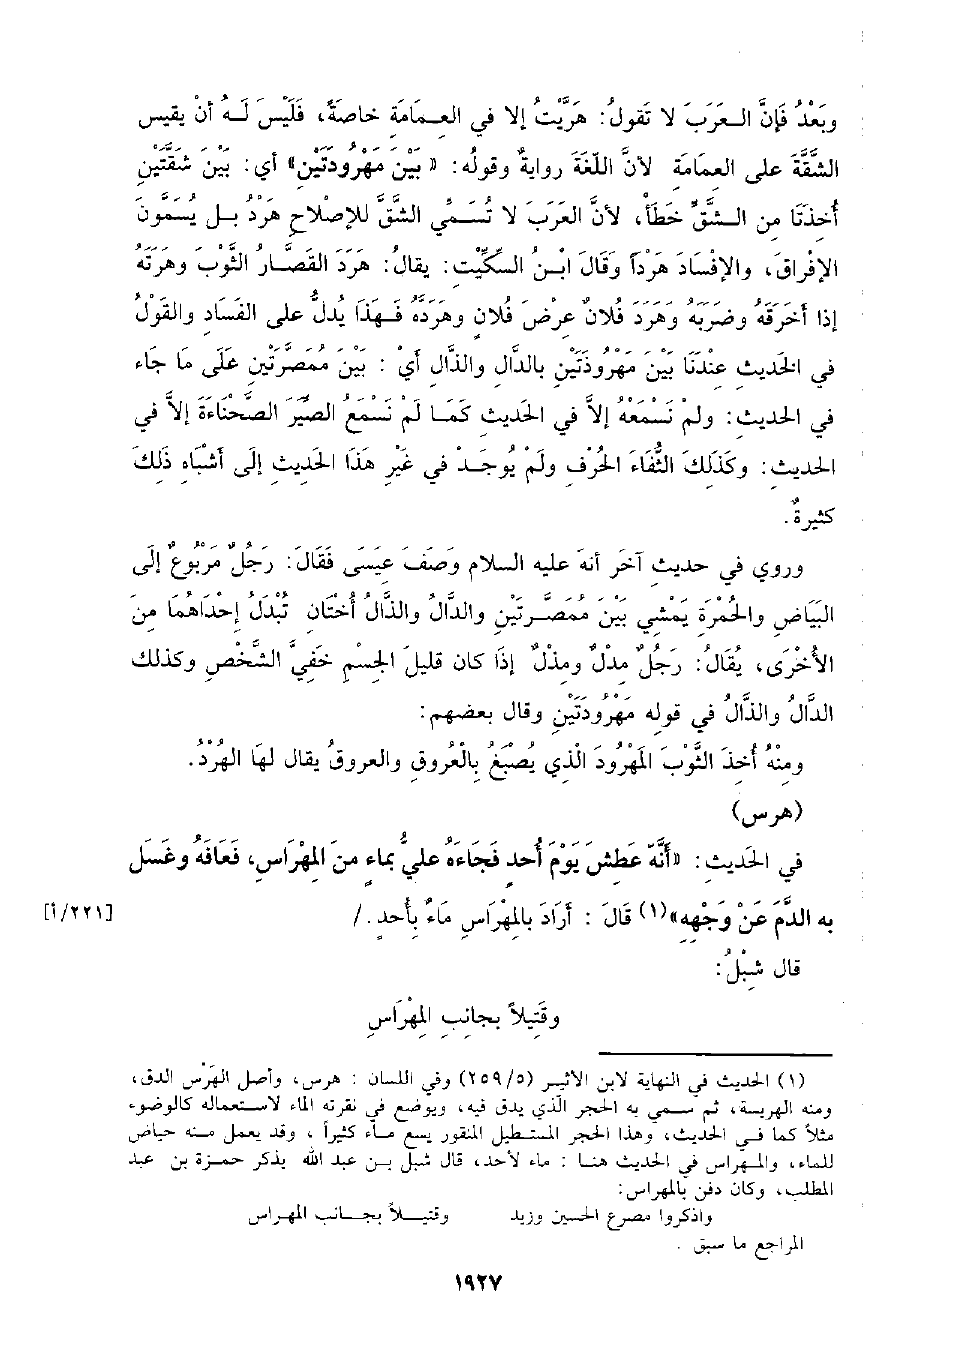 وبَعْدُ فَإِنَّ العَرَبَ لا تَقولُ: هَرَّيْتُ إلا في العمَامَةِ خاصةً، فَلَيْسَ لَهُ أنْ يقيس
الشَّقَّةَ على العمَامَةِ لأنَّ اللّغَةَ روايةٌ وقولُه: «بَيْنَ مَهْرُودَتَيْنِ» أي: بَيْنَ شقتَيْنِ
أُخذَتَا من الشَّقِّ خَطَأٌ، لأنَّ العَرَبَ لا تُسَمِّي الشَّقَّ للإصْلاحِ هَرْدَ بل يُسَمُّونَ
الإفراقَ، والإفسَادَ هَرْداً وَقَالَ ابْنُ السِكِّيْتِ: يقالُ: هَرَدَ القَصَّارُ الثَّوْبَ وهَرَتَهُ
إذا أَخرَقَهُ وضَرَبَهُ وهَرَدَ فُلانٌ عِرْضَ فُلانٍ وهَرَدَهُ فَهَذَا يَدُلُّ على الفَسَادِ والقَوْلُ
في الحَديثِ عِنْدَنَا بَيْنَ مَهْرُودَتَيْنِ بالدَّالِ والذَّالِ أيْ : بَيْنَ مُمَصَّرَتَيْنِ عَلَى مَا جَاء
في الحديثِ: ولمْ نَسْمَعْهُ إلاَّ في الحَديثِ كَمَا لَمْ نَسْمَعِ الصِّيْرَ الصَّحْنَاءَةَ إلاَّ في
الحديثِ: وكَذَلِكَ الثُّفَاءَ الحُرْف ولَمْ يُوجَدْ في غَيْرِ هَذَا الحَديثِ إلَى أشْبَاهِ ذَلكَ
كثيرةٌ.
وروي في حديثٍ آخَرَ أنهَ عليه السلام وَصَفَ عِيسَى فَقَالَ: رَجُلٌ مَرْبُوعٌ إلَى
البَيَاضِ والحُمْرَةِ يَمْشي بَيْنَ مُمَصَّرتَيْنِ والدَّالُ والذَّالُ أُخْتَانِ تُبْدَلُ إحْدَاهُمَا مِنَ
الأُخْرَى، يُقَالُ: رَجُلٌ مِدْلٌ ومِذْلٌ إذَا كان قليلَ الجِسْمِ خَفيَّ الشَّخْصِ وكذلك
الدَّالُ والذَّالُ في قوله مَهْرُودَتَيْنِ وقال بعضهم:
ومِنْهُ أُخذَ الثَّوْبَ المَهْرُودَ الَّذي يُصْبَغُ بالْعُروقِ والعروقُ يقال لهَا الهُرْدُ.
(هرس)
في الحَديث: «أَنَّهُ عَطِشَ يَوْمَ أُحدٍ فَجَاءَهُ عَليٌّ بماءٍ منَ المِهْرَاسِ، فَعَافَهُ وغَسَل
به الدَّمَ عَنْ وَجْهِهِ»(١) قَالَ : أَرَادَ بالِمْهْرَاسِ مَاءً بأُحدٍ./ [٢٢١/أ]
قال شبْلُ:
وقَتِيلاً بجانِبِ المِهْرَاسِ
(١) الحديث في النهاية لابن الأثير (٢٥٩/٥) وفي اللسان : هرس، وأصل الهَرْس الدق،
ومنه الهريسة، ثم سمي به الحجر الّذي يدق فيه، ويوضع في نقرته الماء لاستعماله كالوضوء
مثلاً كما في الحديث، وهذا الحجر المستطيل المنقور يسع ماءً كثيراً ، وقد يعمل منه حياض
للماء، والمهراس في الحديث هنا : ماء لأحد، قال شبل بن عبد الله يذكر حمزة بن عبد
المطلب، وكان دفن بالمهراس:
واذكروا مصرع الحسين وزيد وقتيلاً بجانب المهراس
المراجع ما سبق .
١٩٢٧